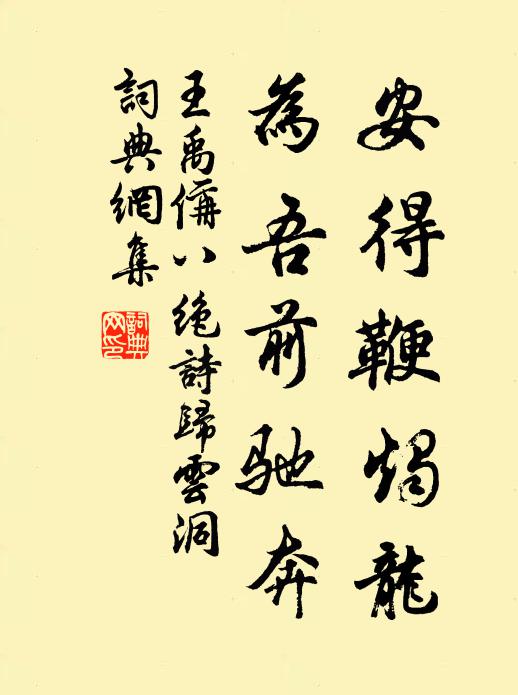 安得鞭燭龍
為吾前馳奔
王禹偁八絶詩歸雲洞
詞典網集
詞典
网印